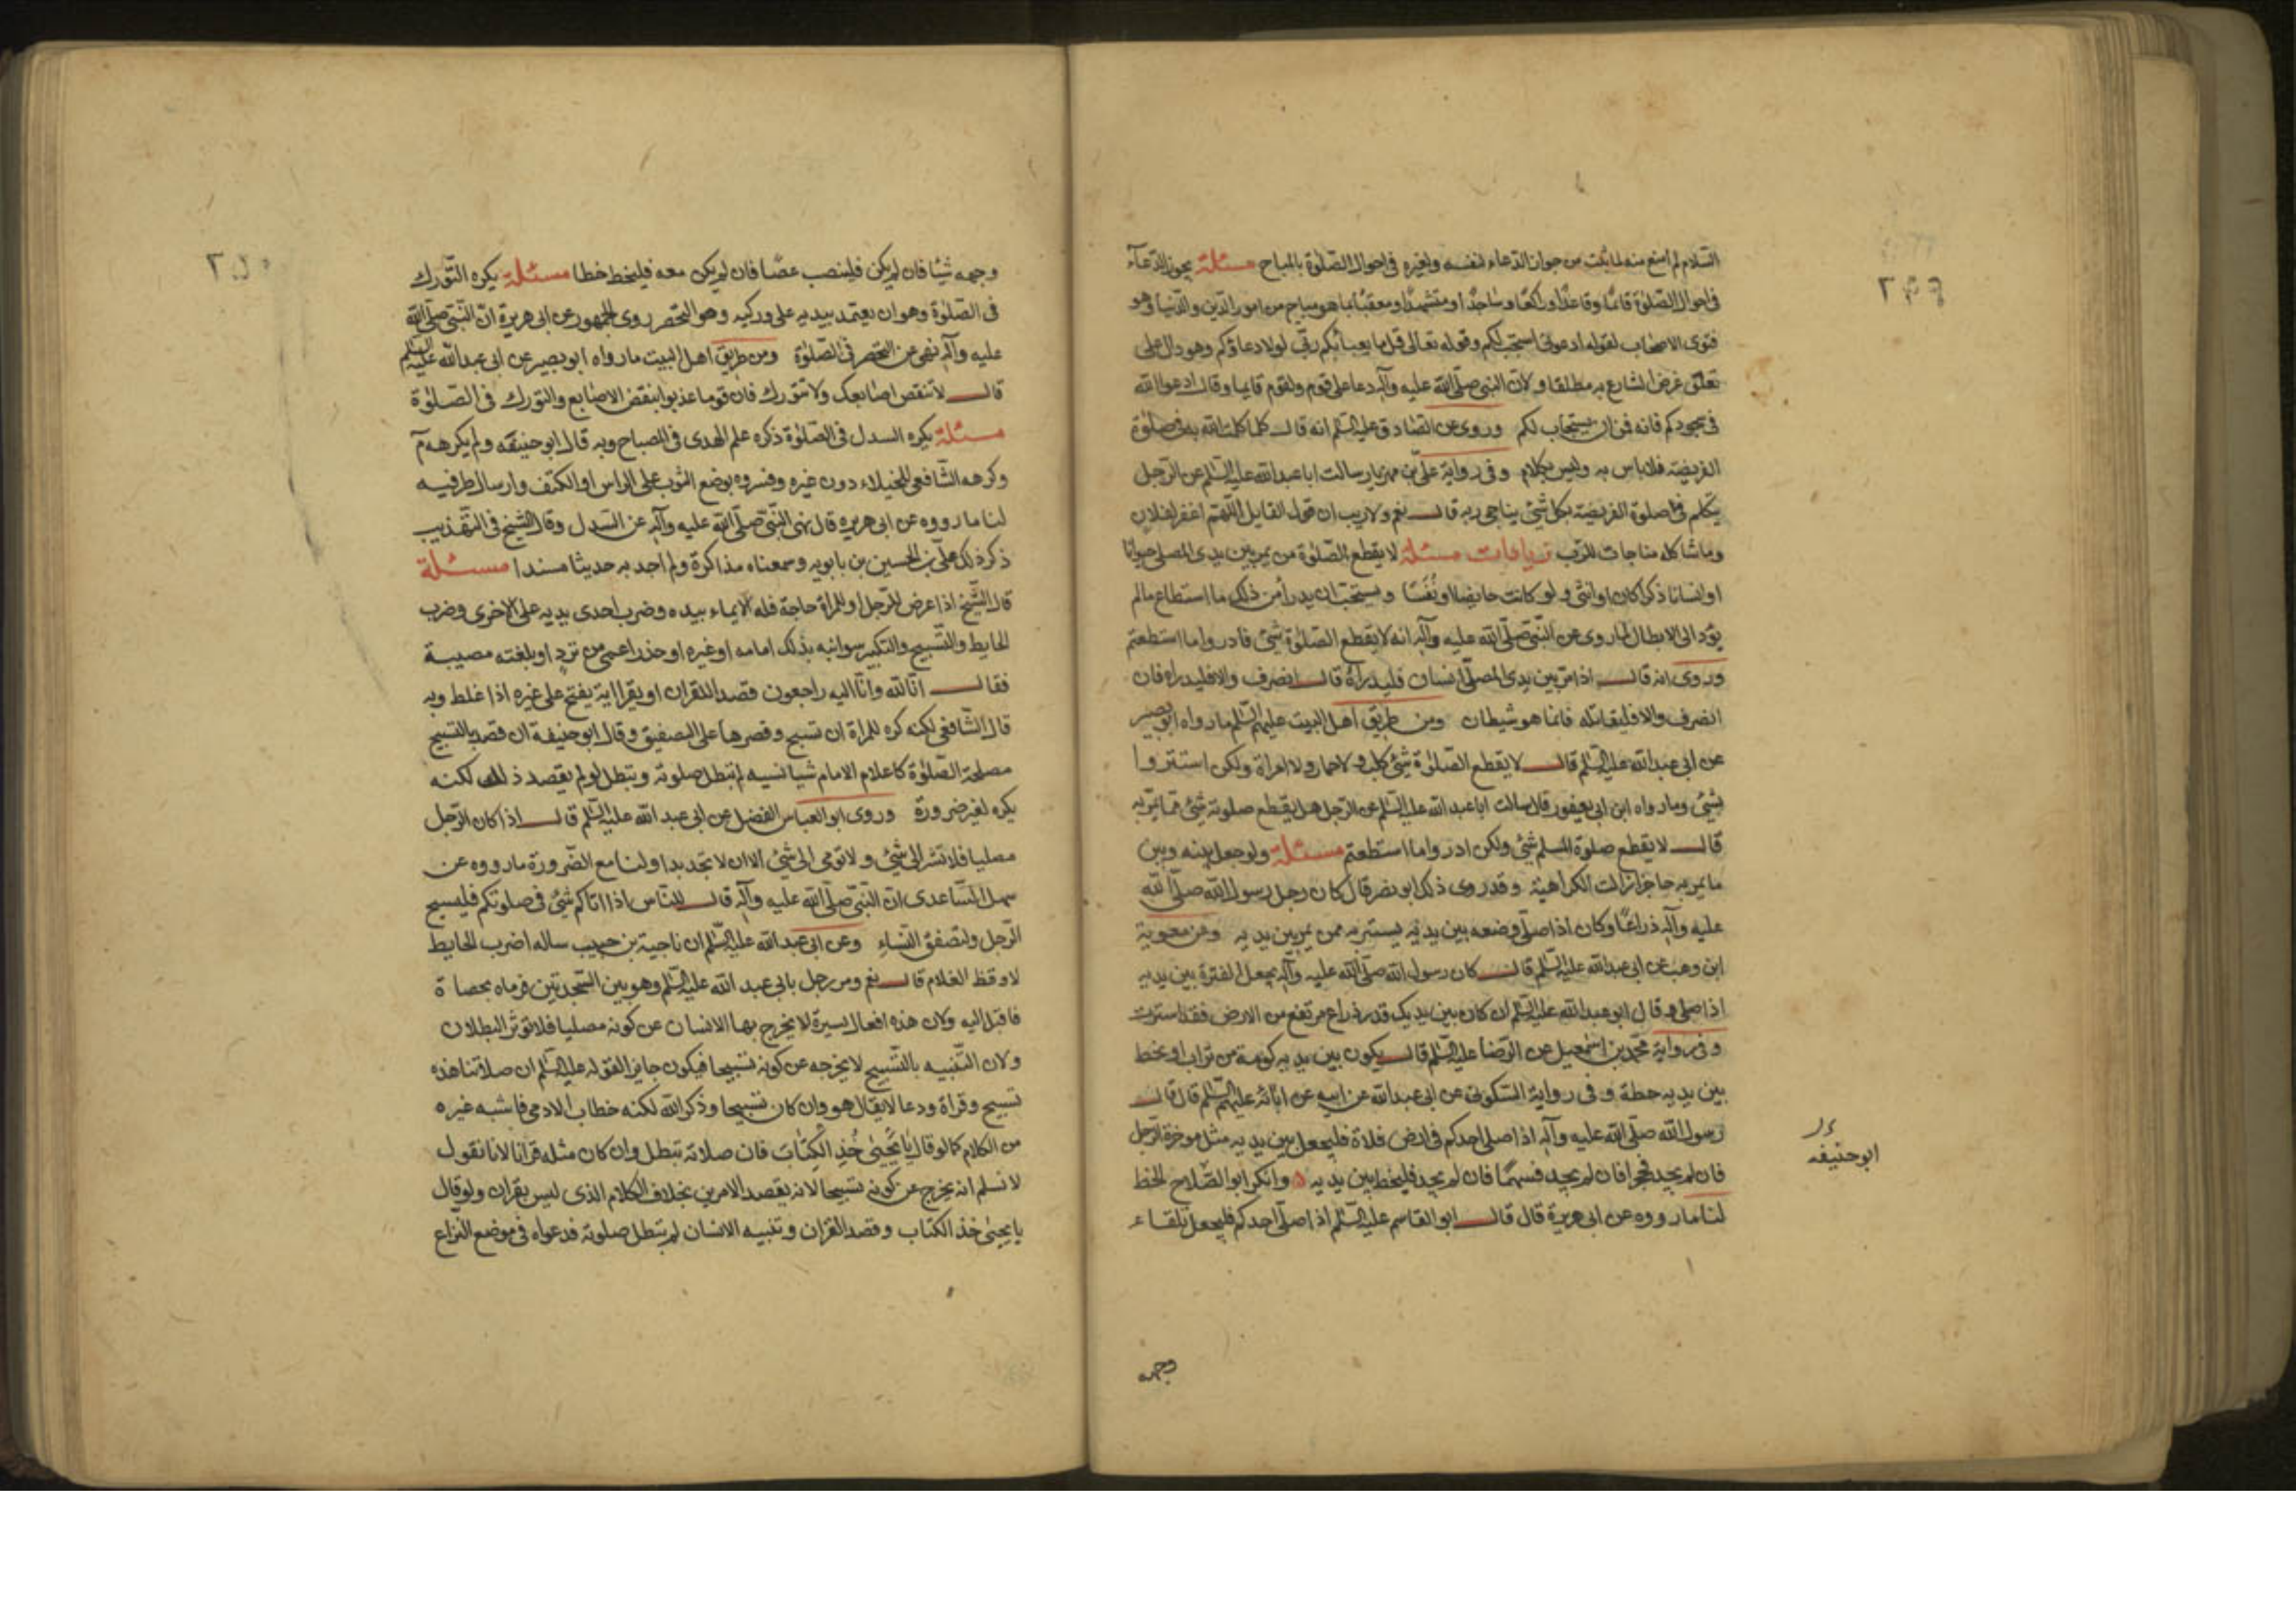 السلام لم امنع منه لما ثبت من جواز الدعاء لنفسه ولغيره فى احوال الصلوة بالمباح مسئلة يجوز الدعاء
فى احوال الصلوة قائما وقاعدا وراكعا وساجدا ومتشهدا ومعقبا بما هو مباح من امور الدين والدنيا وهو
فتوى الاصحاب لقوله ادعونى استجب لكم وقوله تعالى قل ما يعبأ بكم ربى لولا دعاؤكم وهو دال على
تعلق غرض الشارع به مطلقا ولان النبى صلى الله عليه وآله دعا على قوم ولقوم قايما وقال ادعوا الله
فى سجودكم فانه قمن ان يستجاب لكم وروى عن الصادق عليه السلم انه قال كلما كلمت الله به فى صلوة
الفريضة فلا باس به وليس بكلام وفى رواية على بن مهزيار سالت ابا عبد الله عليه السلم عن الرجل
يتكلم فى صلوة الفريضة بكل شئ يناجى ربه قال نعم ولا ريب ان قول القايل اللهم اغفر لفلان
وما شاكله مناجات للرب مسئلة لا يقطع الصلوة من يمر بين يدى المصلى حيوانا
او انسانا ذكرا كان او انثى ولو كانت حايضا او نفسا ويستحب ان يدرأ من ذلك ما استطاع مالم
يؤد الى الابطال لما روى عن النبى صلى الله عليه وآله انه لا يقطع الصلوة شئ فادروا ما استطعتم
وروى انه قال اذا مر بين يدى المصلى انسان فليدرأه قال انصرف والا فليدراه فان
انصرف والا فليقاتله فانما هو شيطان ومن طريق اهل البيت عليهم السلم ما رواه ابو بصير
عن ابى عبد الله عليه السلم قال لا يقطع الصلوة شئ كلب ولا حمار ولا امراة ولكن استتروا
بشئ وما رواه ابن ابى يعفور قال سالت ابا عبد الله عليه السلم عن الرجل هل يقطع صلوته شئ مما يمر به
قال لا يقطع صلوة المسلم شئ ولكن ادروا ما استطعتم مسئلة ولو جعل بينه وبين
ما يمر به حاجزا زالت الكراهية وقد روى ذلك ابو بصر قال كان رحل رسول الله صلى الله
عليه وآله ذراعا وكان اذا صلى وضعه بين يديه يستتر به ممن يمر بين يديه وعن معوية
ابن وهب عن ابى عبد الله عليه السلم قال كان رسول الله صلى الله عليه وآله يجعل العنزة بين يديه
اذا صلى وقال ابو عبد الله عليه السلم ان كان بين يديك قدر ذراع مرتفع من الارض فقد استترت
وفى رواية محمد بن اسمعيل عن الرضا عليه السلم قال يكون بين يديه كومة من تراب او يخط
بين يديه خطة وفى رواية السكونى عن ابى عبد الله عن ابيه عن ابائه عليهم السلم قال قال
رسول الله صلى الله عليه وآله اذا صلى احدكم فى ارض فلاة فليجعل بين يديه مثل موخرة الرحل
فان لم يجد فحجرا فان لم يجد فسهما فان لم يجد فليخط بين يديه وانكر ابو الصلاح الخط
لنا ما رووه عن ابى هريرة قال قال ابو القاسم عليه السلم اذا صلى احدكم فليجعل تلقاء
ابو حنيفه
وجهه
وجهه شيئا فان لم يكن فلينصب عصا فان لم يكن معه فليخط خطا مسئلة يكره التورك
فى الصلوة وهو ان يعتمد بيديه على وركيه وهو التخصر روى الجمهور عن ابى هريرة ان النبى صلى الله
عليه وآله نهى عن التخصر فى الصلوة ومن طريق اهل البيت ما رواه ابو بصير عن ابى عبد الله عليه السلم
قال لا تنقض اصابعك ولا تتورك فان قوما عذبوا بنقض الاصابع والتورك فى الصلوة
مسئلة يكره السدل فى الصلوة ذكره علم الهدى فى المصباح وبه قال ابو حنيفه ولم يكرهه م
وكرهه الشافعى للخيلاء دون غيره وفسروه بوضع الثوب على الراس او الكتف وارسال طرفيه
لنا ما رووه عن ابى هريره قال نهى النبى صلى الله عليه وآله عن السدل وقال الشيخ فى التهذيب
ذكر ذلك على بن الحسين بن بابويه وسمعناه مذاكرة ولم اجد به حديثا مسندا مسئلة
قال الشيخ اذا عرض للرجل او للمراة حاجة فله الايماء بيده وضرب احدى يديه على الاخرى وضرب
الحايط والتسبيح والتكبير سوا نبه بذلك امامه او غيره او حذر اعمى من ترد او بلغته مصيبة
فقال انا لله وانا اليه راجعون قصدا للقران او يقرا اية يفتح على غيره اذا غلط وبه
قال الشافعى لكنه كره للمراة ان تسبح وقصرها على التصفيق وقال ابو حنيفة ان قصد بالتسبيح
مصلحة الصلوة كاعلام الامام شيا نسيه لم تبطل صلوته وتبطل لو لم يقصد ذلك لكنه
يكره لغير ضرورة وروى ابو العباس الفضل عن ابى عبد الله عليه السلم قال اذا كان الرجل
مصليا فلا تشر الى شئ ولا تومى الى شئ الا ان لا تجد بدا ولنا مع الضرورة ما رووه عن
سهل الساعدى ان النبى صلى الله عليه وآله قال للناس اذا اتاكم شئ فى صلوتكم فليسبح
الرجل ولتصفق النساء وعن ابى عبد الله عليه السلم ان ناجية بن حبيب ساله اضرب الحايط
لاوقظ الغلام قال نعم ومر رجل بابى عبد الله عليه السلم وهو بين السجدتين فرماه بحصاة
فاقبل اليه ولان هذه افعال يسيرة لا يخرج بها الانسان عن كونه مصليا فلا تؤثر البطلان
ولان التنبيه بالتسبيح لا يخرجه عن كونه تسبيحا فيكون جايزا لقوله عليه السلم ان صلاتنا هذه
تسبيح وقراة ودعا لا يقال هو وان كان تسبيحا وذكرا لله لكنه خطاب الادمى فاشبه غيره
من الكلام كما لو قال يا يحيى خذ الكتاب فان صلاته تبطل وان كان مثله قرانا لانا نقول
لا نسلم انه يخرج عن كونه تسبيحا لانه يقصد الامرين بخلاف الكلام الذى ليس بقران ولو قال
يا يحيى خذ الكتاب وقصد القران وتنبيه الانسان لم تبطل صلوته فدعواه فى موضع النزاع